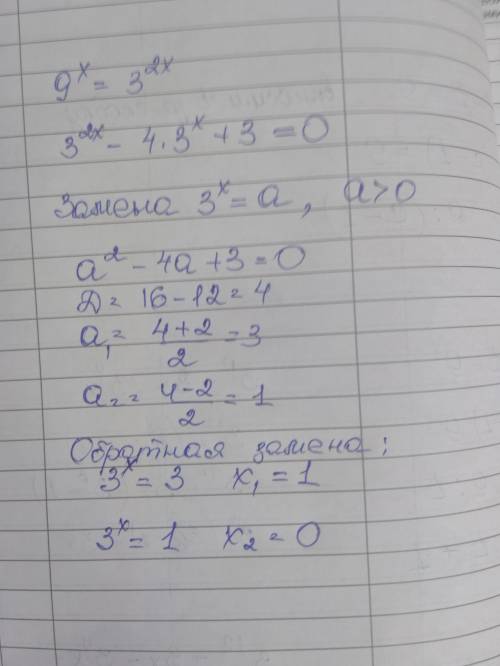 9^x = 3^2x
3^2x - 4·3^x + 3 = 0
Замена 3^x = a, a>0
a^2 - 4a + 3 = 0
Д = 16 - 12 = 4
a₁ = (4+2)/2 = 3
a₂ = (4-2)/2 = 1
Обратная замена:
3^x = 3 x₁ = 1
3^x = 1 x₂ = 0